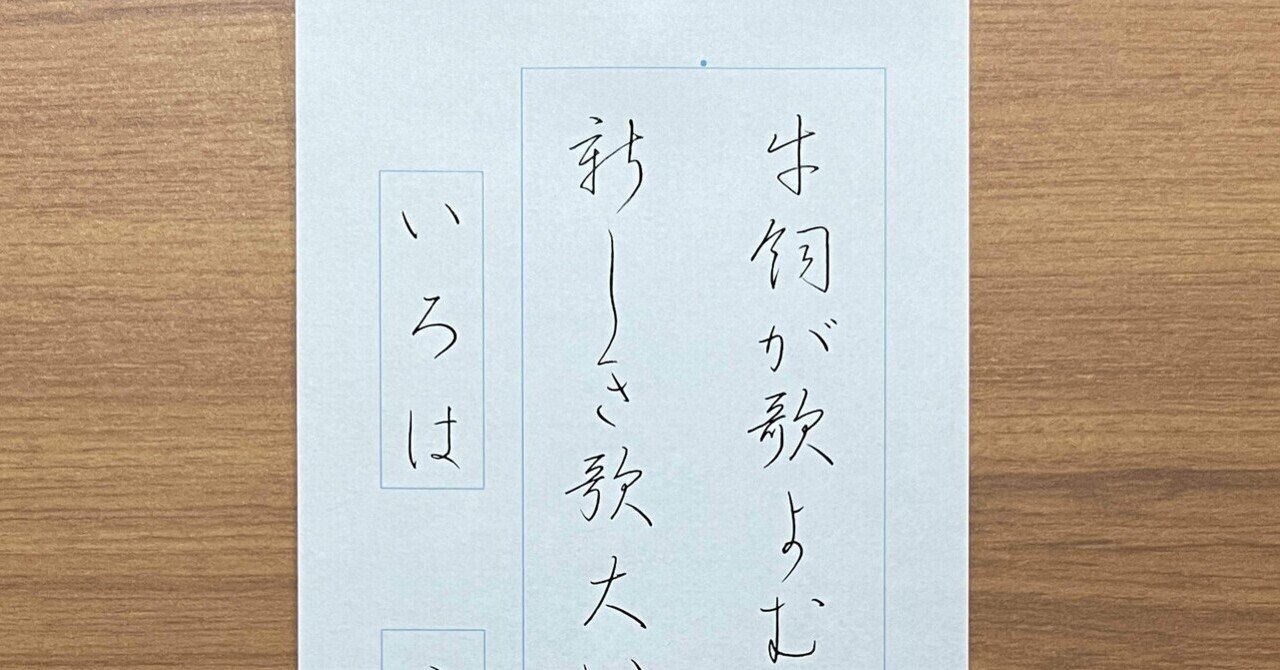 牛飼が歌よむ
新しき歌大
いろは